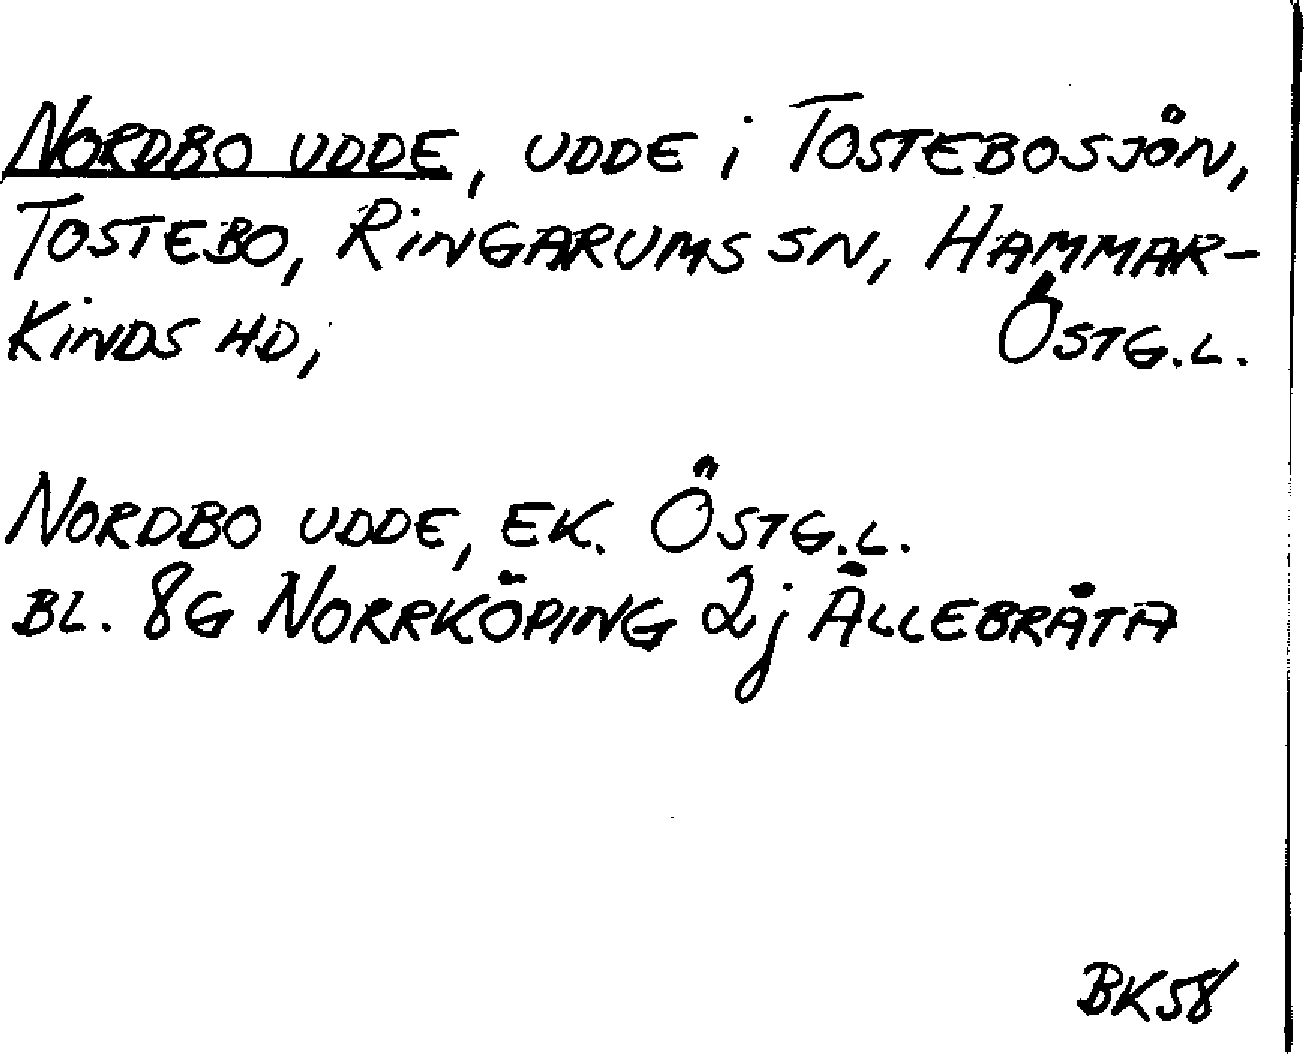 NORDBO UDDE, UDDE i TOSTEBOSJÖN,
TOSTEBO, RINGARUMS SN, HAMMAR-
KINDS HD, ÖSTG.L.
NORDBO UDDE, EK. ÖSTG.L.
BL. 8G NORRKÖPING 2j ÄLLEBRÅTA
BK58